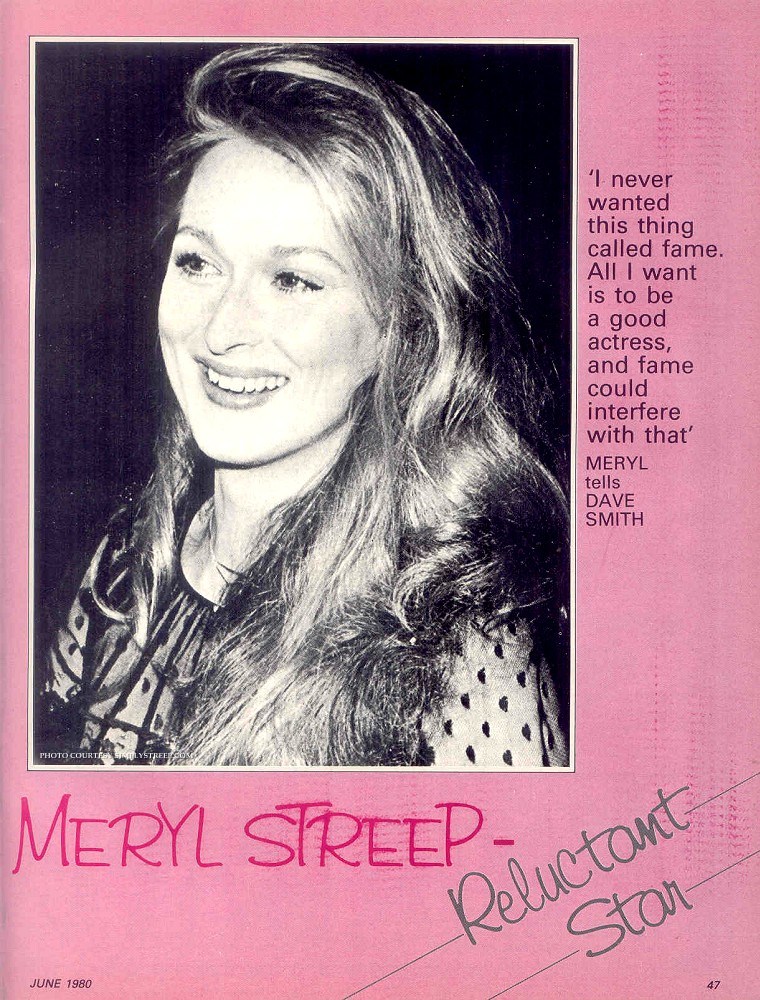 'I never
wanted
this thing
called fame.
All I want
is to be
a good
actress,
and fame
could
interfere
with that'
MERYL
tells
DAVE
SMITH
PHOTO COURTESY SIMPLYSTREEP.COM
MERYL STREEP -
Reluctant
Star
JUNE 1980
47